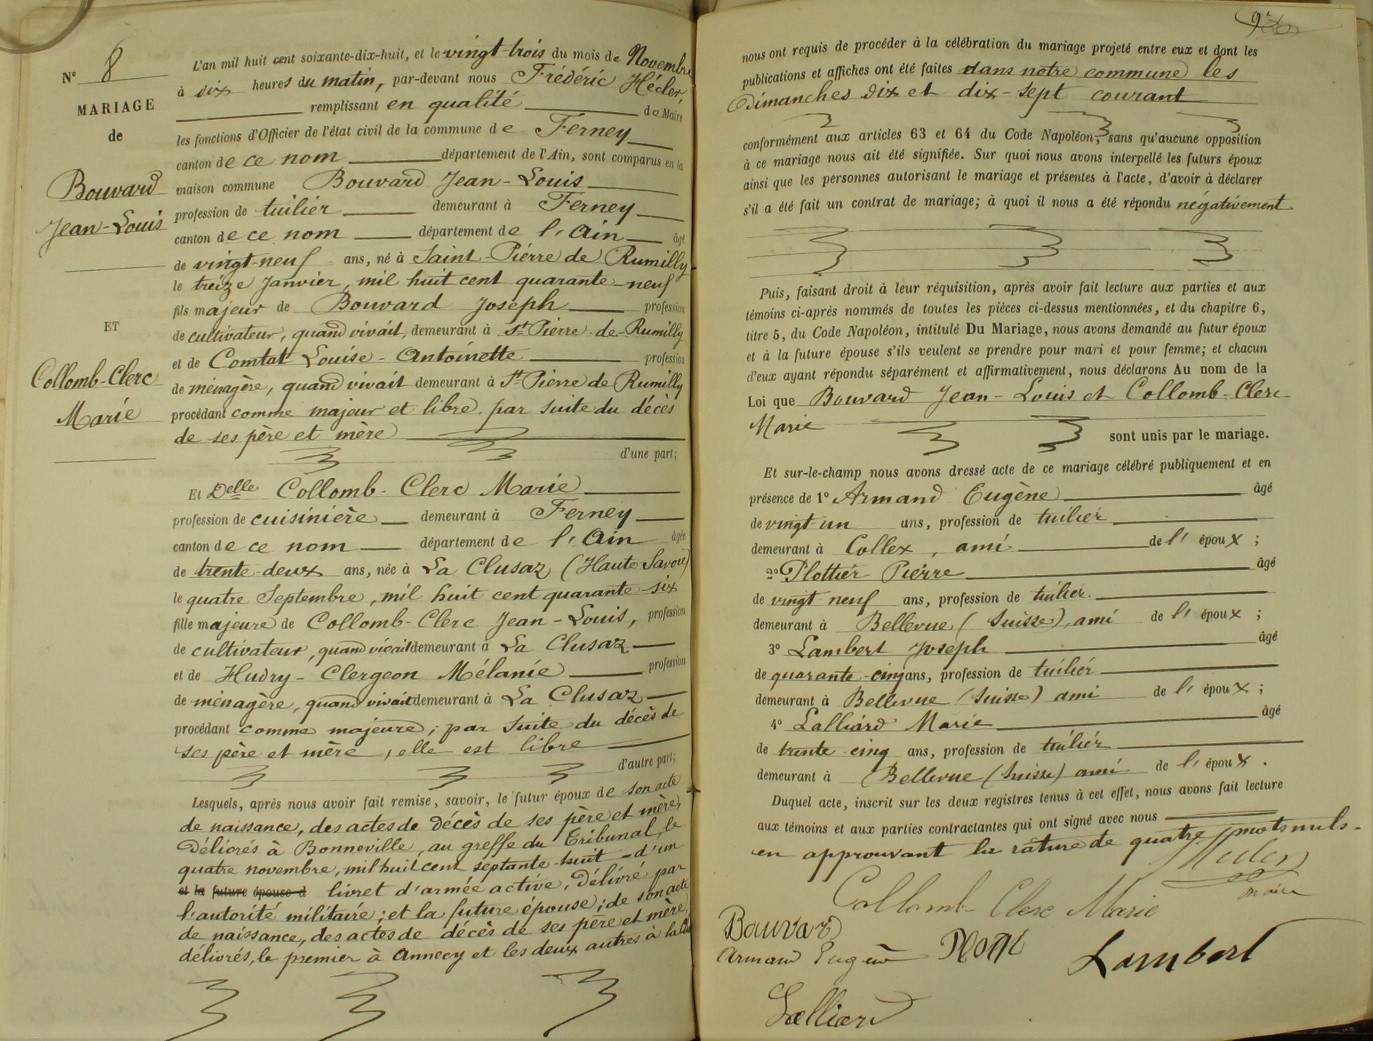 N° 8
MARIAGE
de
Bouvard
Jean-Louis
ET
Collomb-Clerc
Marie
L'an mil huit cent soixante-dix-huit, et le vingt-trois du mois de Novembre
à dix heures du matin, par-devant nous Frédéric Hécler,
remplissant en qualité de Maire
les fonctions d'Officier de l'état civil de la commune de Ferney
canton de ce nom département de l'Ain, sont comparus en la
maison commune Bouvard Jean-Louis
profession de tuilier demeurant à Ferney
canton de ce nom département de l'Ain âgé
de vingt-neuf ans, né à Saint-Pierre de Rumilly
le treize Janvier, mil huit cent quarante-neuf
fils majeur de Bouvard Joseph profession
de cultivateur, quand vivait, demeurant à St Pierre-de-Rumilly
et de Comtat Louise-Antoinette profession
de ménagère, quand vivait demeurant à St Pierre de Rumilly
procédant comme majeur et libre par suite du décès
de ses père et mère
d'une part;
Et Delle Collomb-Clerc Marie
profession de cuisinière demeurant à Ferney
canton de ce nom département de l'Ain âgée
de trente-deux ans, née à La Clusaz (Haute Savoie)
le quatre Septembre, mil huit cent quarante-six
fille majeure de Collomb-Clerc Jean-Louis, profession
de cultivateur, quand vivait demeurant à La Clusaz
et de Hudry-Clergeon Mélanie profession
de ménagère, quand vivait demeurant à La Clusaz
procédant comme majeure; par suite du décès de
ses père et mère, elle est libre
d'autre part;
Lesquels, après nous avoir fait remise, savoir, le futur époux de son acte
de naissance, des actes de décès de ses père et mère,
délivrés à Bonneville, au greffe du Tribunal, le
quatre novembre, mil huit cent septante-huit - d'un
et la future épouse d livret d'armée active, délivré par
l'autorité militaire; et la future épouse; de son acte
de naissance, des actes de décès de ses père et mère,
délivrés, le premier à Annecy et les deux autres à la
nous ont requis de procéder à la célébration du mariage projeté entre eux et dont les
publications et affiches ont été faites dans notre commune les
Dimanches dix et dix-sept courant
conformément aux articles 63 et 64 du Code Napoléon, sans qu'aucune opposition
à ce mariage nous ait été signifiée. Sur quoi nous avons interpellé les futurs époux
ainsi que les personnes autorisant le mariage et présentes à l'acte, d'avoir à déclarer
s'il a été fait un contrat de mariage; à quoi il nous a été répondu négativement
Puis, faisant droit à leur réquisition, après avoir fait lecture aux parties et aux
témoins ci-après nommés de toutes les pièces ci-dessus mentionnées, et du chapitre 6,
titre 5, du Code Napoléon, intitulé Du Mariage, nous avons demandé au futur époux
et à la future épouse s'ils veulent se prendre pour mari et pour femme; et chacun
d'eux ayant répondu séparément et affirmativement, nous déclarons Au nom de la
Loi que Bouvard Jean-Louis et Collomb-Clerc
Marie
sont unis par le mariage.
Et sur-le-champ nous avons dressé acte de ce mariage célébré publiquement et en
présence de 1° Armand Eugène âgé
de vingt un ans, profession de tuilier
demeurant à Collex, ami de l'époux;
2° Plottier Pierre âgé
de vingt neuf ans, profession de tuilier
demeurant à Bellevue (Suisse), ami de l'époux;
3° Lambert Joseph âgé
de quarante-cinq ans, profession de tuilier
demeurant à Bellevue (Suisse) ami de l'époux;
4° Lalliard Marie âgé
de trente-cinq ans, profession de tuilier
demeurant à Bellevue (Suisse) ami de l'époux.
Duquel acte, inscrit sur les deux registres tenus à cet effet, nous avons fait lecture
aux témoins et aux parties contractantes qui ont signé avec nous
en approuvant la rature de quatre mots nuls.
maire
Collomb Clerc Marie
Bouvard
Armand Eugène
Lambert
Lalliard